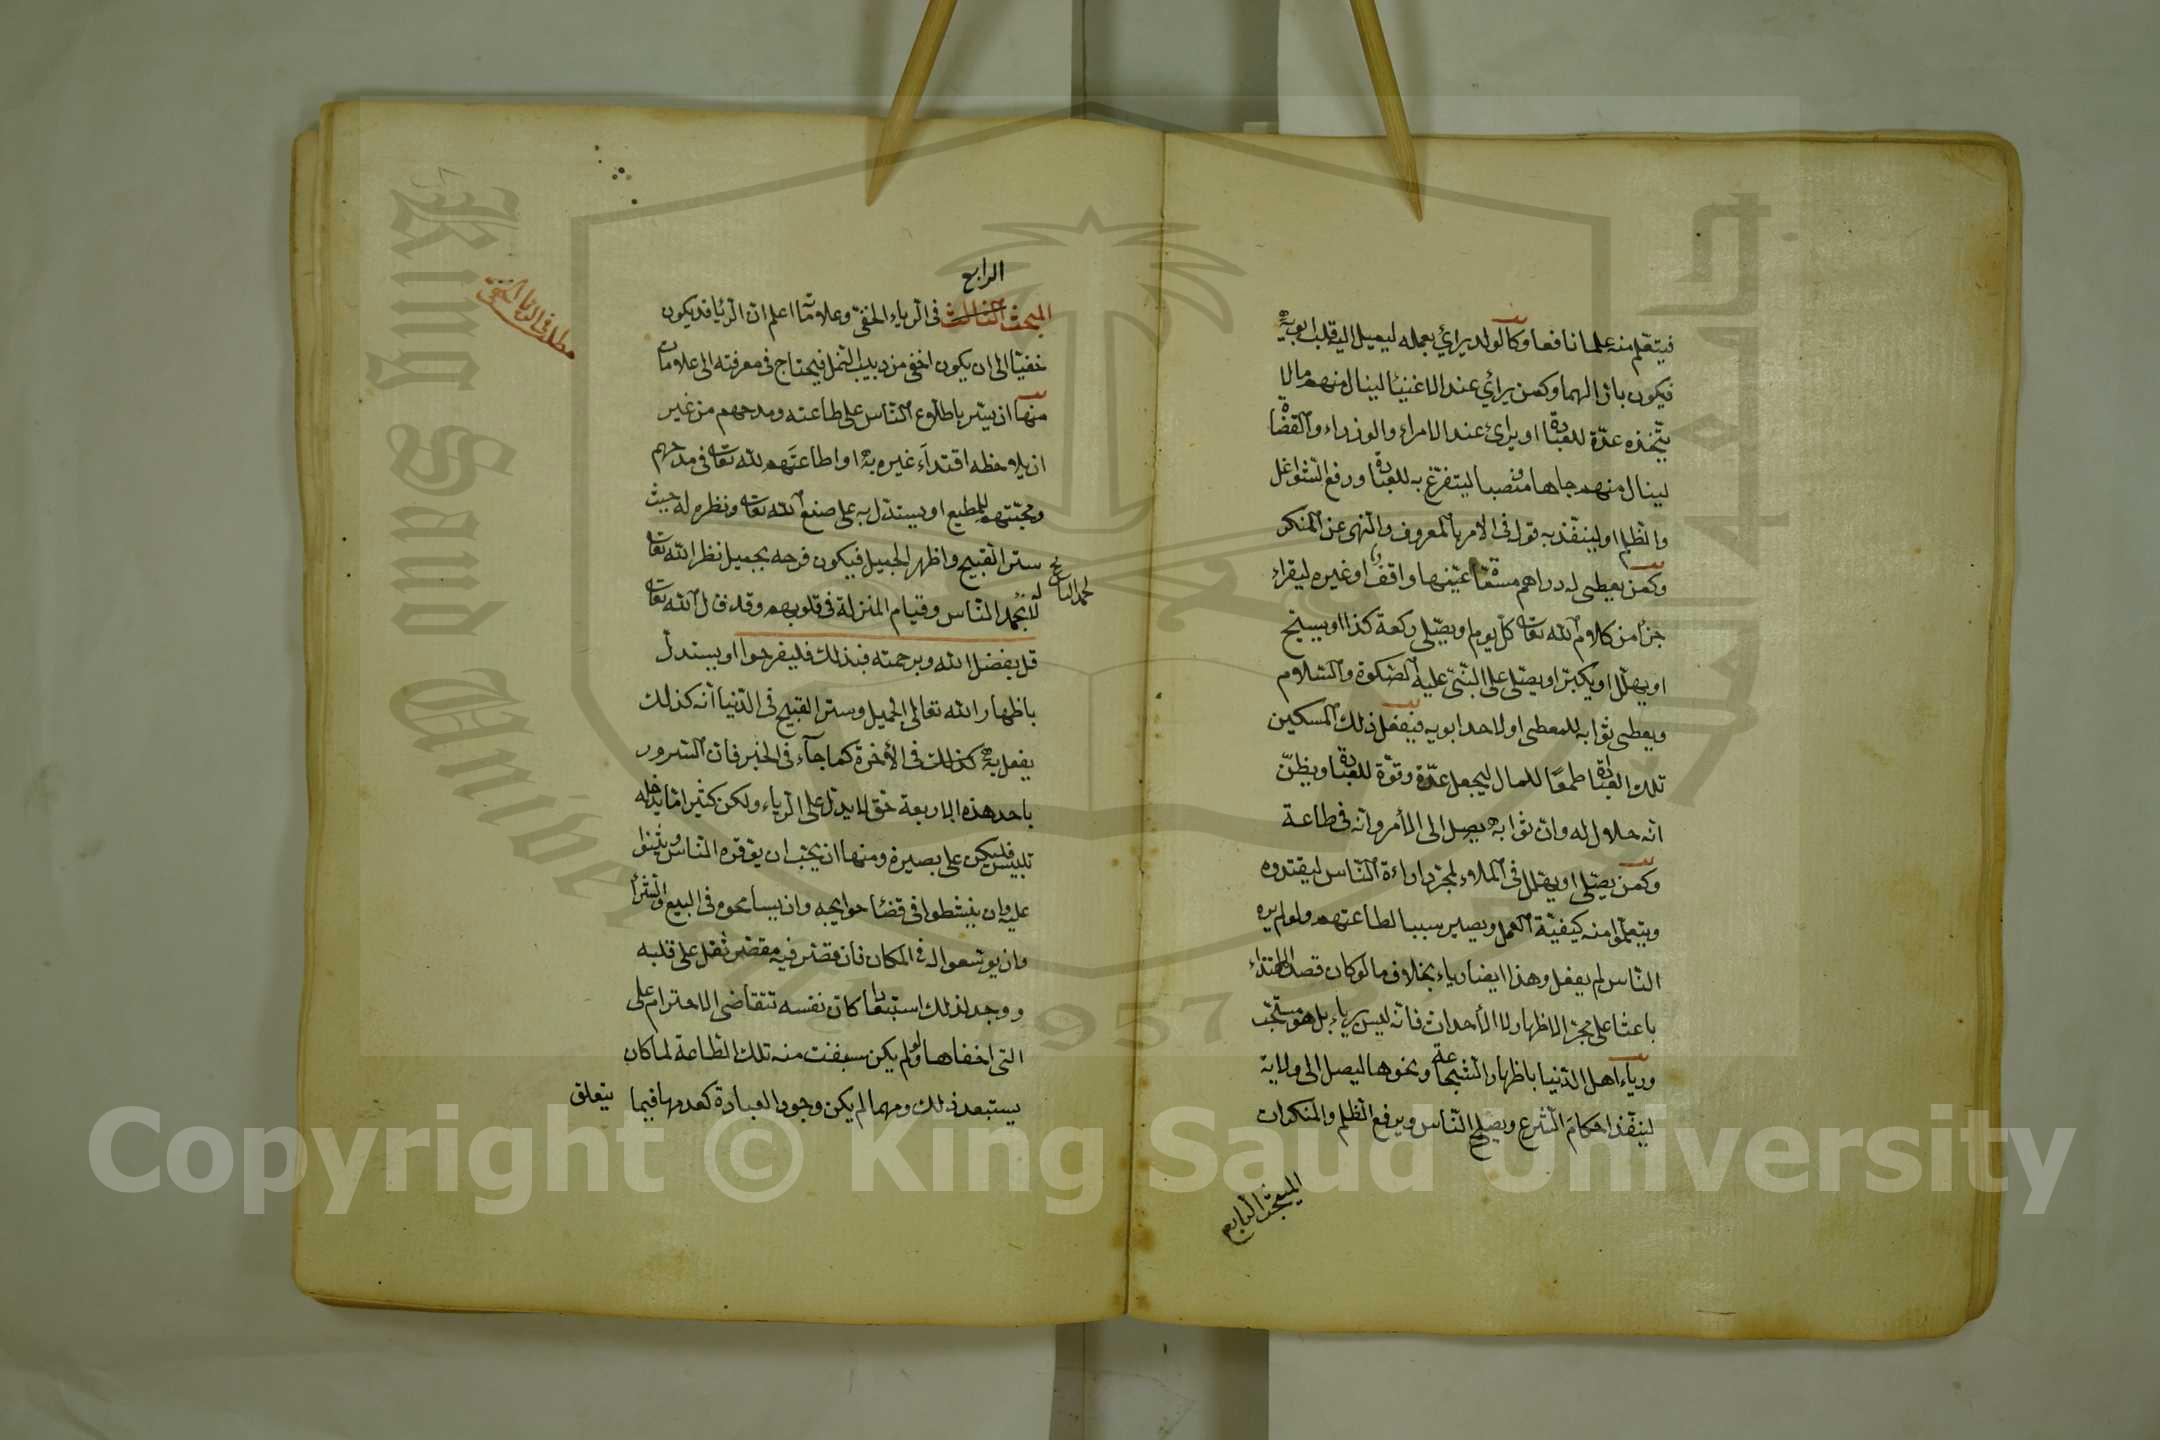 فيتعلم منه علما نافعا وكالولد يرائي بعمله ليميل اليه قلب ابويه
فيكون بارا لهما وكمن يرائي عند الاغنيا لينال منهم مالا
يتخذه عدّة للعبادة او يرائ عند الامراء والوزراء والقضاة
لينال منهم جاها ومنصبا ليتفرغ به للعبادة ورفع الشواغل
والظلم او لينفذ به قوله في الامر بالمعروف والنهي عن المنكر
وكمن يعطى له دراهم عينها واقف او غيره ليقراء
جزا من كلام الله تعالى كل يوم او يصلي ركعة كذا او يسبح
او يهلل او يكبر او يصلي على النبي عليه الصلوة والسلام
ويعطى ثوابه للمعطى او لاحد ابويه فيفعل ذلك المسكين
تلك العبادة طمعًا للمال ليجعل عدّة وقوّة للعبادة ويظنّ
انه حلال له وان ثوابه يصل الى الأمر وانه في طاعة
وكمن يصلي او يهلل في الملاء لمجرد اراءة الناس ليقتدوه
ويتعلموا منه كيفيّة العمل ويصير سببا لطاعتهم ولو لم يره
الناس لم يفعل وهذا ايضا رياء بخلاف ما لو كان قصد الاقتداء
باعثا على مجرد الاظهار لا الأحداث فانه ليس برياء بل هو مستحب
ورياء اهل الدنيا باظهار الشجاعة ونحوها ليصل الى ولاية
لينفذ احكام الشرع ويصلح الناس ويرفع الظلم والمنكرات
المبحث الرابع
الرابع
المبحث الثالث في الرياء الخفي وعلاماته اعلم ان الريا قد يكون
خفيا الى ان يكون اخفى من دبيب النمل فيحتاج في معرفته الى علامات
منها ان يسر باطلاع الناس على طاعته ومدحهم من غير
ان يلاحظه اقتداء غيره به او اطاعتهم لله تعالى في مدحهم
ومحبتهم للمطيع او يستدل به على صنع الله تعالى ونظره له حيث
ستر القبيح واظهر الجميل فيكون فرحه بجميل نظر الله تعالى
لا بحمد الناس وقيام المنزلة في قلوبهم وقد قال الله تعالى
قل بفضل الله وبرحمته فبذلك فليفرحوا او يستدل
باظهار الله تعالى الجميل وستر القبيح في الدنيا انه كذلك
يفعل به كذلك في الأخرة كما جاء في الخبر فان السرور
باحد هذه الاربعة حق لا يدل على الرياء ولكن كثيرا ما يدخله
تلبيس فليكن على بصيرة ومنها ان يحب ان يوقره الناس ويثنوا
عليه وان ينشطوا في قضا حوايجه وان يسامحوه في البيع والشرا
وان يوسعوا له في المكان فان قصر فيه مقصر ثقل على قلبه
ووجد لذلك استبعادا كان نفسه تتقاضى الاحترام على
التي اخفاها ولو لم يكن سبقت منه تلك الطاعة لما كان
يستبعد ذلك ومهما لم يكن وجود العبادة كعدمها فيما
يتعلق
مطلب في الريا الخفي